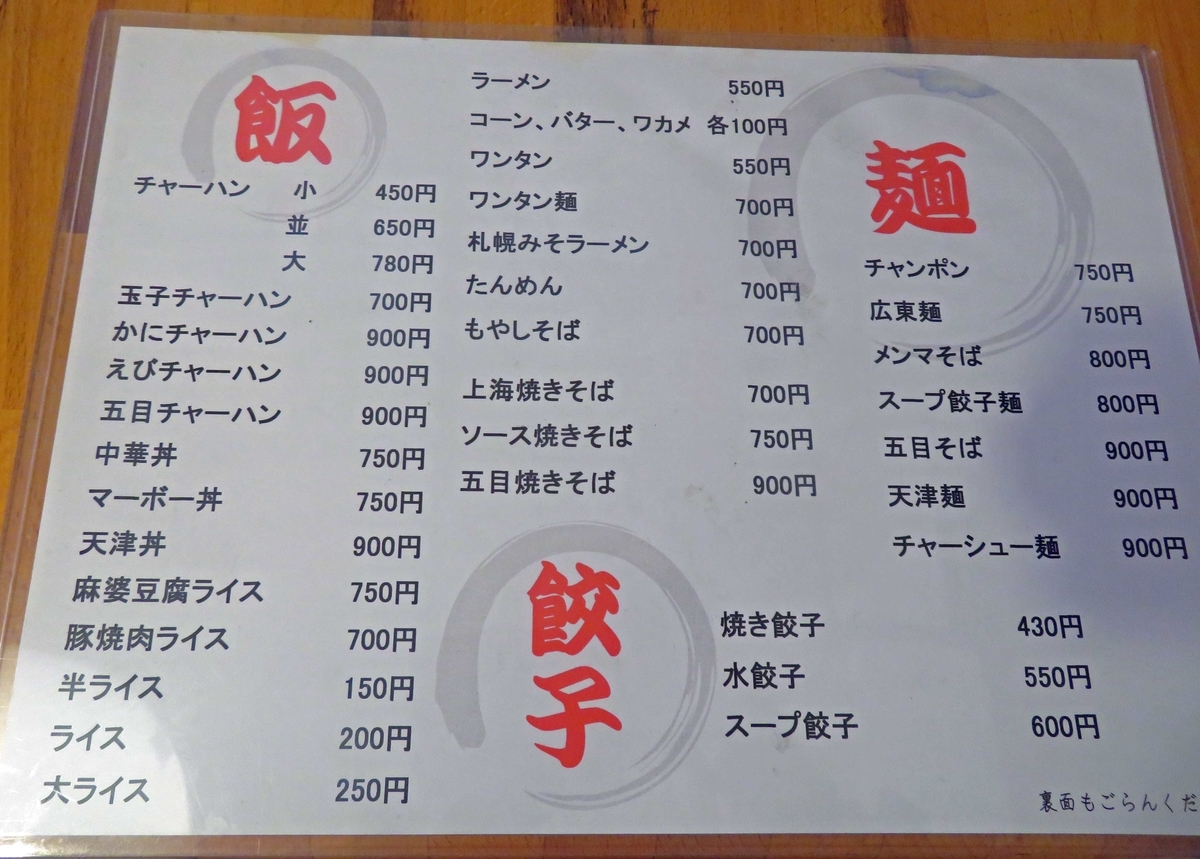 飯
チャーハン 小 450円
並 650円
大 780円
玉子チャーハン 700円
かにチャーハン 900円
えびチャーハン 900円
五目チャーハン 900円
中華丼 750円
マーボー丼 750円
天津丼 900円
麻婆豆腐ライス 750円
豚焼肉ライス 700円
半ライス 150円
ライス 200円
大ライス 250円
ラーメン 550円
コーン、バター、ワカメ 各100円
ワンタン 550円
ワンタン麺 700円
札幌みそラーメン 700円
たんめん 700円
もやしそば 700円
上海焼きそば 700円
ソース焼きそば 750円
五目焼きそば 900円
麺
チャンポン 750円
広東麺 750円
メンマそば 800円
スープ餃子麺 800円
五目そば 900円
天津麺 900円
チャーシュー麺 900円
餃子
焼き餃子 430円
水餃子 550円
スープ餃子 600円
裏面もごらんくだ